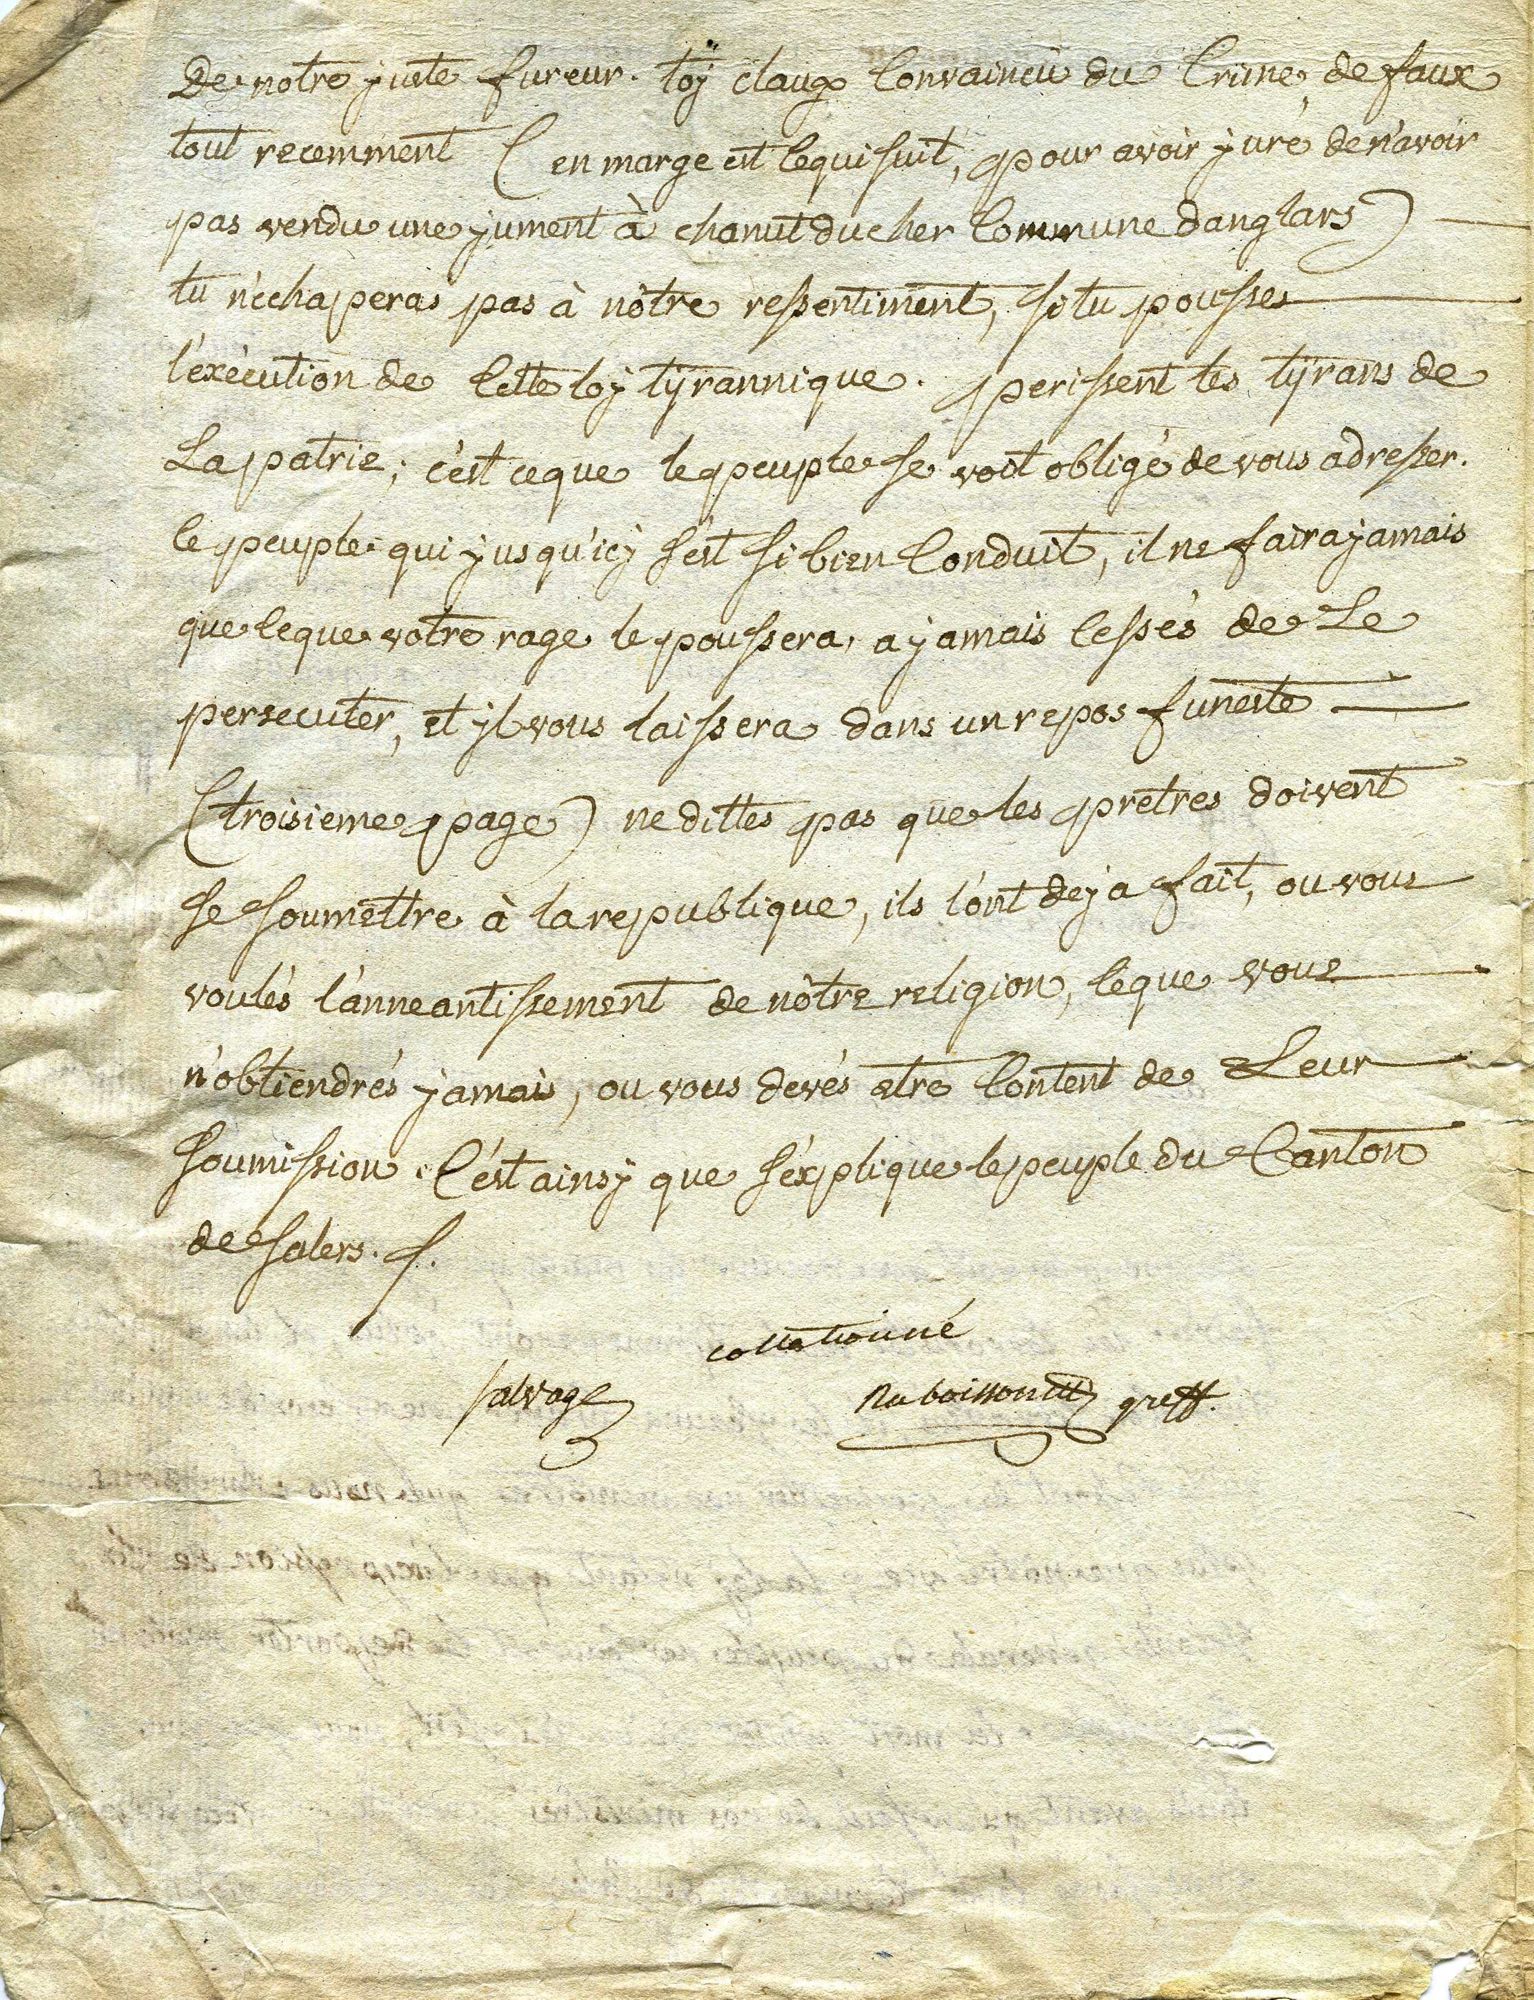 De notre juste fureur. toy claux Convaincu du Crime de faux
tout recemment ( en marge est Cequi suit, pour avoir juré de n'avoir
pas vendu une jument à chanut du cher Commune danglars )
tu n'echaperas pas à nôtre ressentiment, si tu pousses
l'exècution de Cette loy tÿrannique. perissent les tÿrans de
La patrie; c'est ceque le peuple se voit obligé de vous adresser.
le peuple qui jusqu'icy s'est si bien Conduit, il ne faira jamais
que ceque votre rage le poussera, a jamais Cessés de Le
persecuter, et yl vous laissera dans un repos funeste
(troisieme page) ne dittes pas que les prêtres doivent
se soumettre à la republique, ils l'ont deja fait, ou vous
voulés l'anneantissement de nôtre religion, Ceque vous
n'obtiendrés jamais, ou vous devés etre Content de Leur
soumission. C'est ainsy que s'explique le peuple du Canton
de salers.
collationné
salvage
greff.